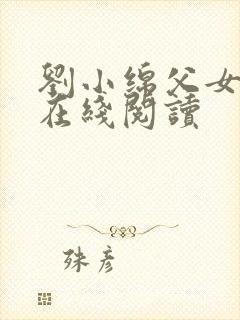 劉小綿父女
在綫閱讀
殊彥